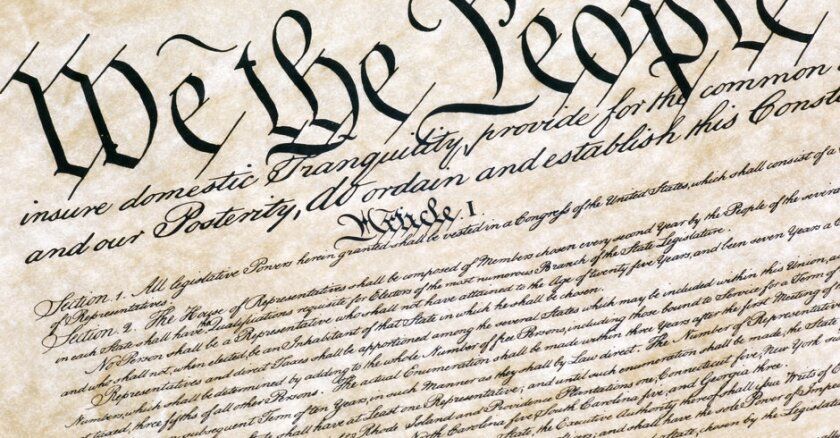 We the People
insure domestic Tranquility, provide for the common
and our Posterity, do ordain and establish this Const
Article. I.
Section. 1. All legislative Powers herein granted shall be vested in a Congress of the United States, which shall consist of a
of Representatives.
Section. 2. The House of Representatives shall be composed of Members chosen every second Year by the People of the several
in each State shall have the Qualifications requisite for Electors of the most numerous Branch of the State Legislature.
No Person shall be a Representative who shall not have attained to the Age of twenty five Years, and been seven Years a
and who shall not, when elected, be an Inhabitant of that State in which he shall be chosen.
Representatives and direct Taxes shall be apportioned among the several States which may be included within this Union,
Numbers, which shall be determined by adding to the whole Number of free Persons, including those bound to Service for a Term of
three fifths of all other Persons. The actual Enumeration shall be made within three Years after the first Meeting of
subsequent Term of ten Years, in such Manner as they shall by Law direct. The Number of Representatives
shall have at Least one Representative; and until such enumeration shall be made, the State
Rhode Island and Providence Plantations one, Connecticut five, New York
North Carolina five, South Carolina five, and Georgia three.
State, the Executive Authority thereof shall issue Writs of
and other Officers; and shall have the sole Power of Imp
chosen by the Legislature